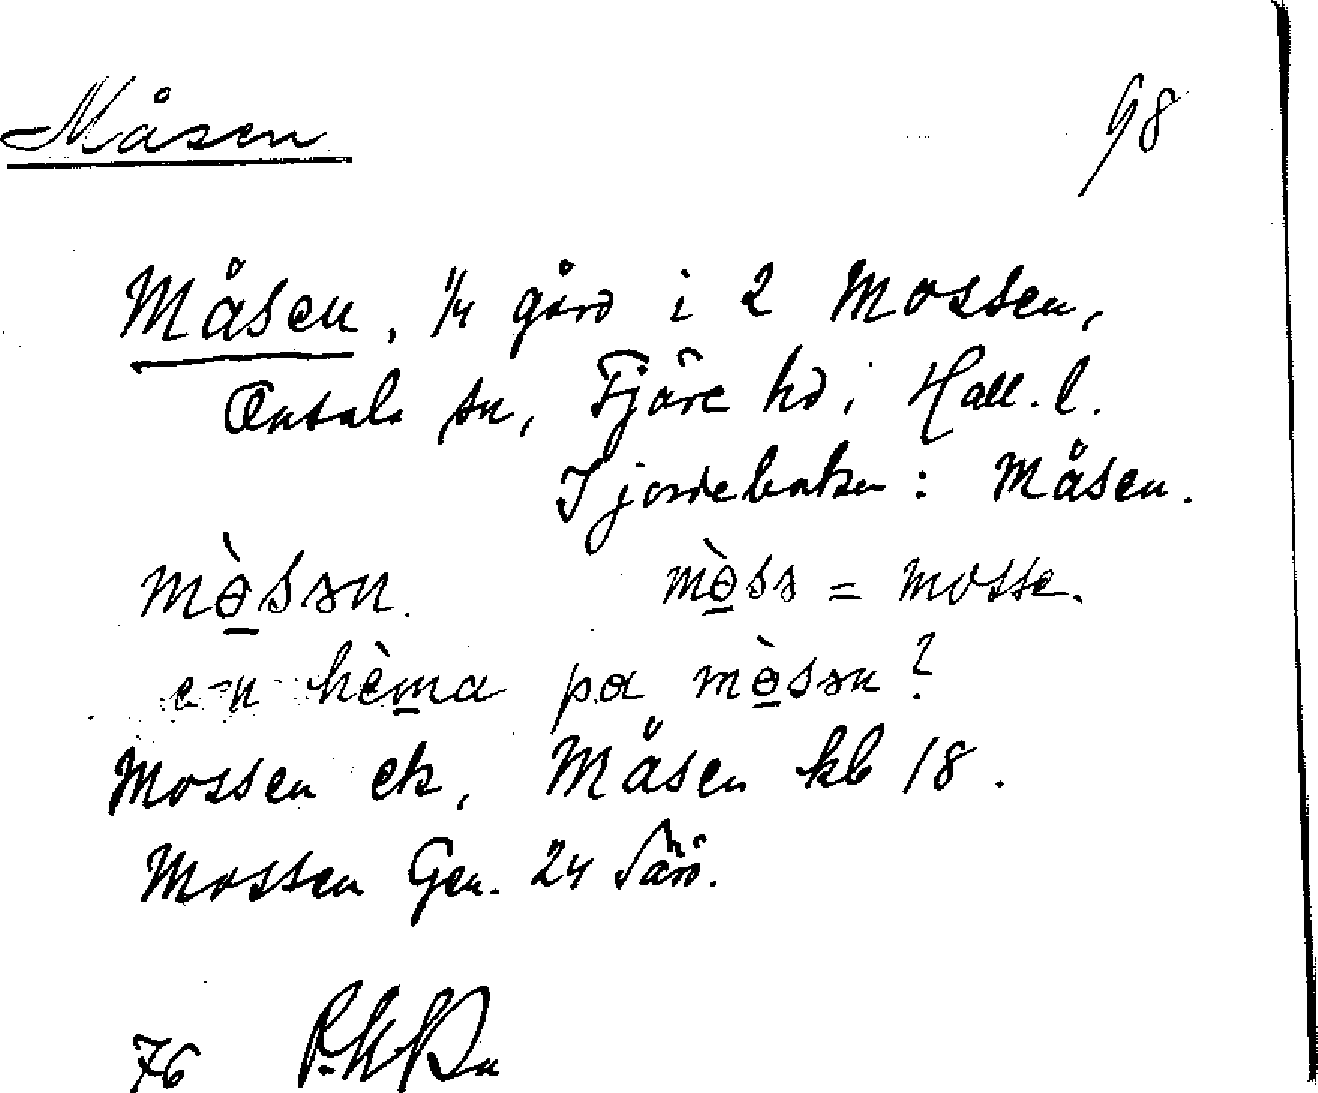 Måsen 98
Måsen, 1/4 gård i 2 Mossen,
Onsala sn, Fjäre hd i Hall. l.
I jordeboken: Måsen.
mɵ̀sən. mɵ̀sə = mosse.
hèma pa mɵ̀sən?
Mossen ek, Måsen kb 18.
Mossen Gen. 24 Särö.
76